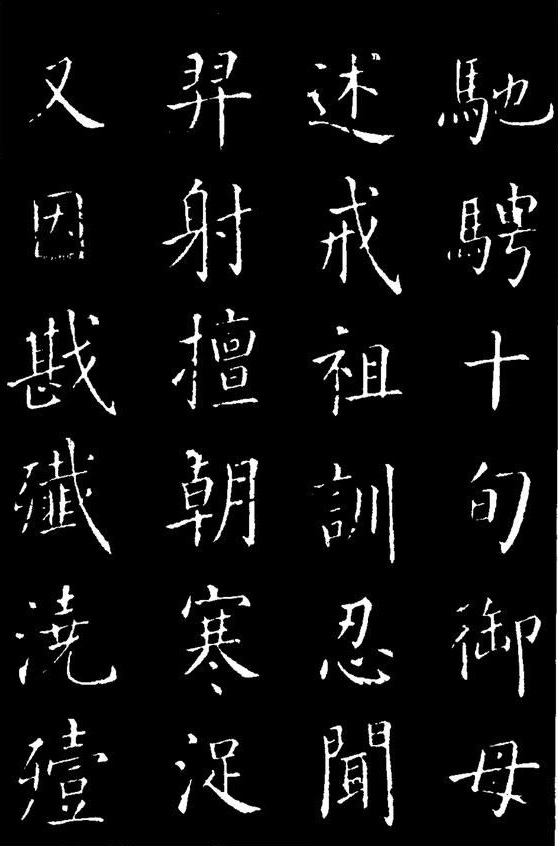 馳騁十旬御母
述戒祖訓忍聞
羿射擅朝寒浞
又因戡殲澆殪